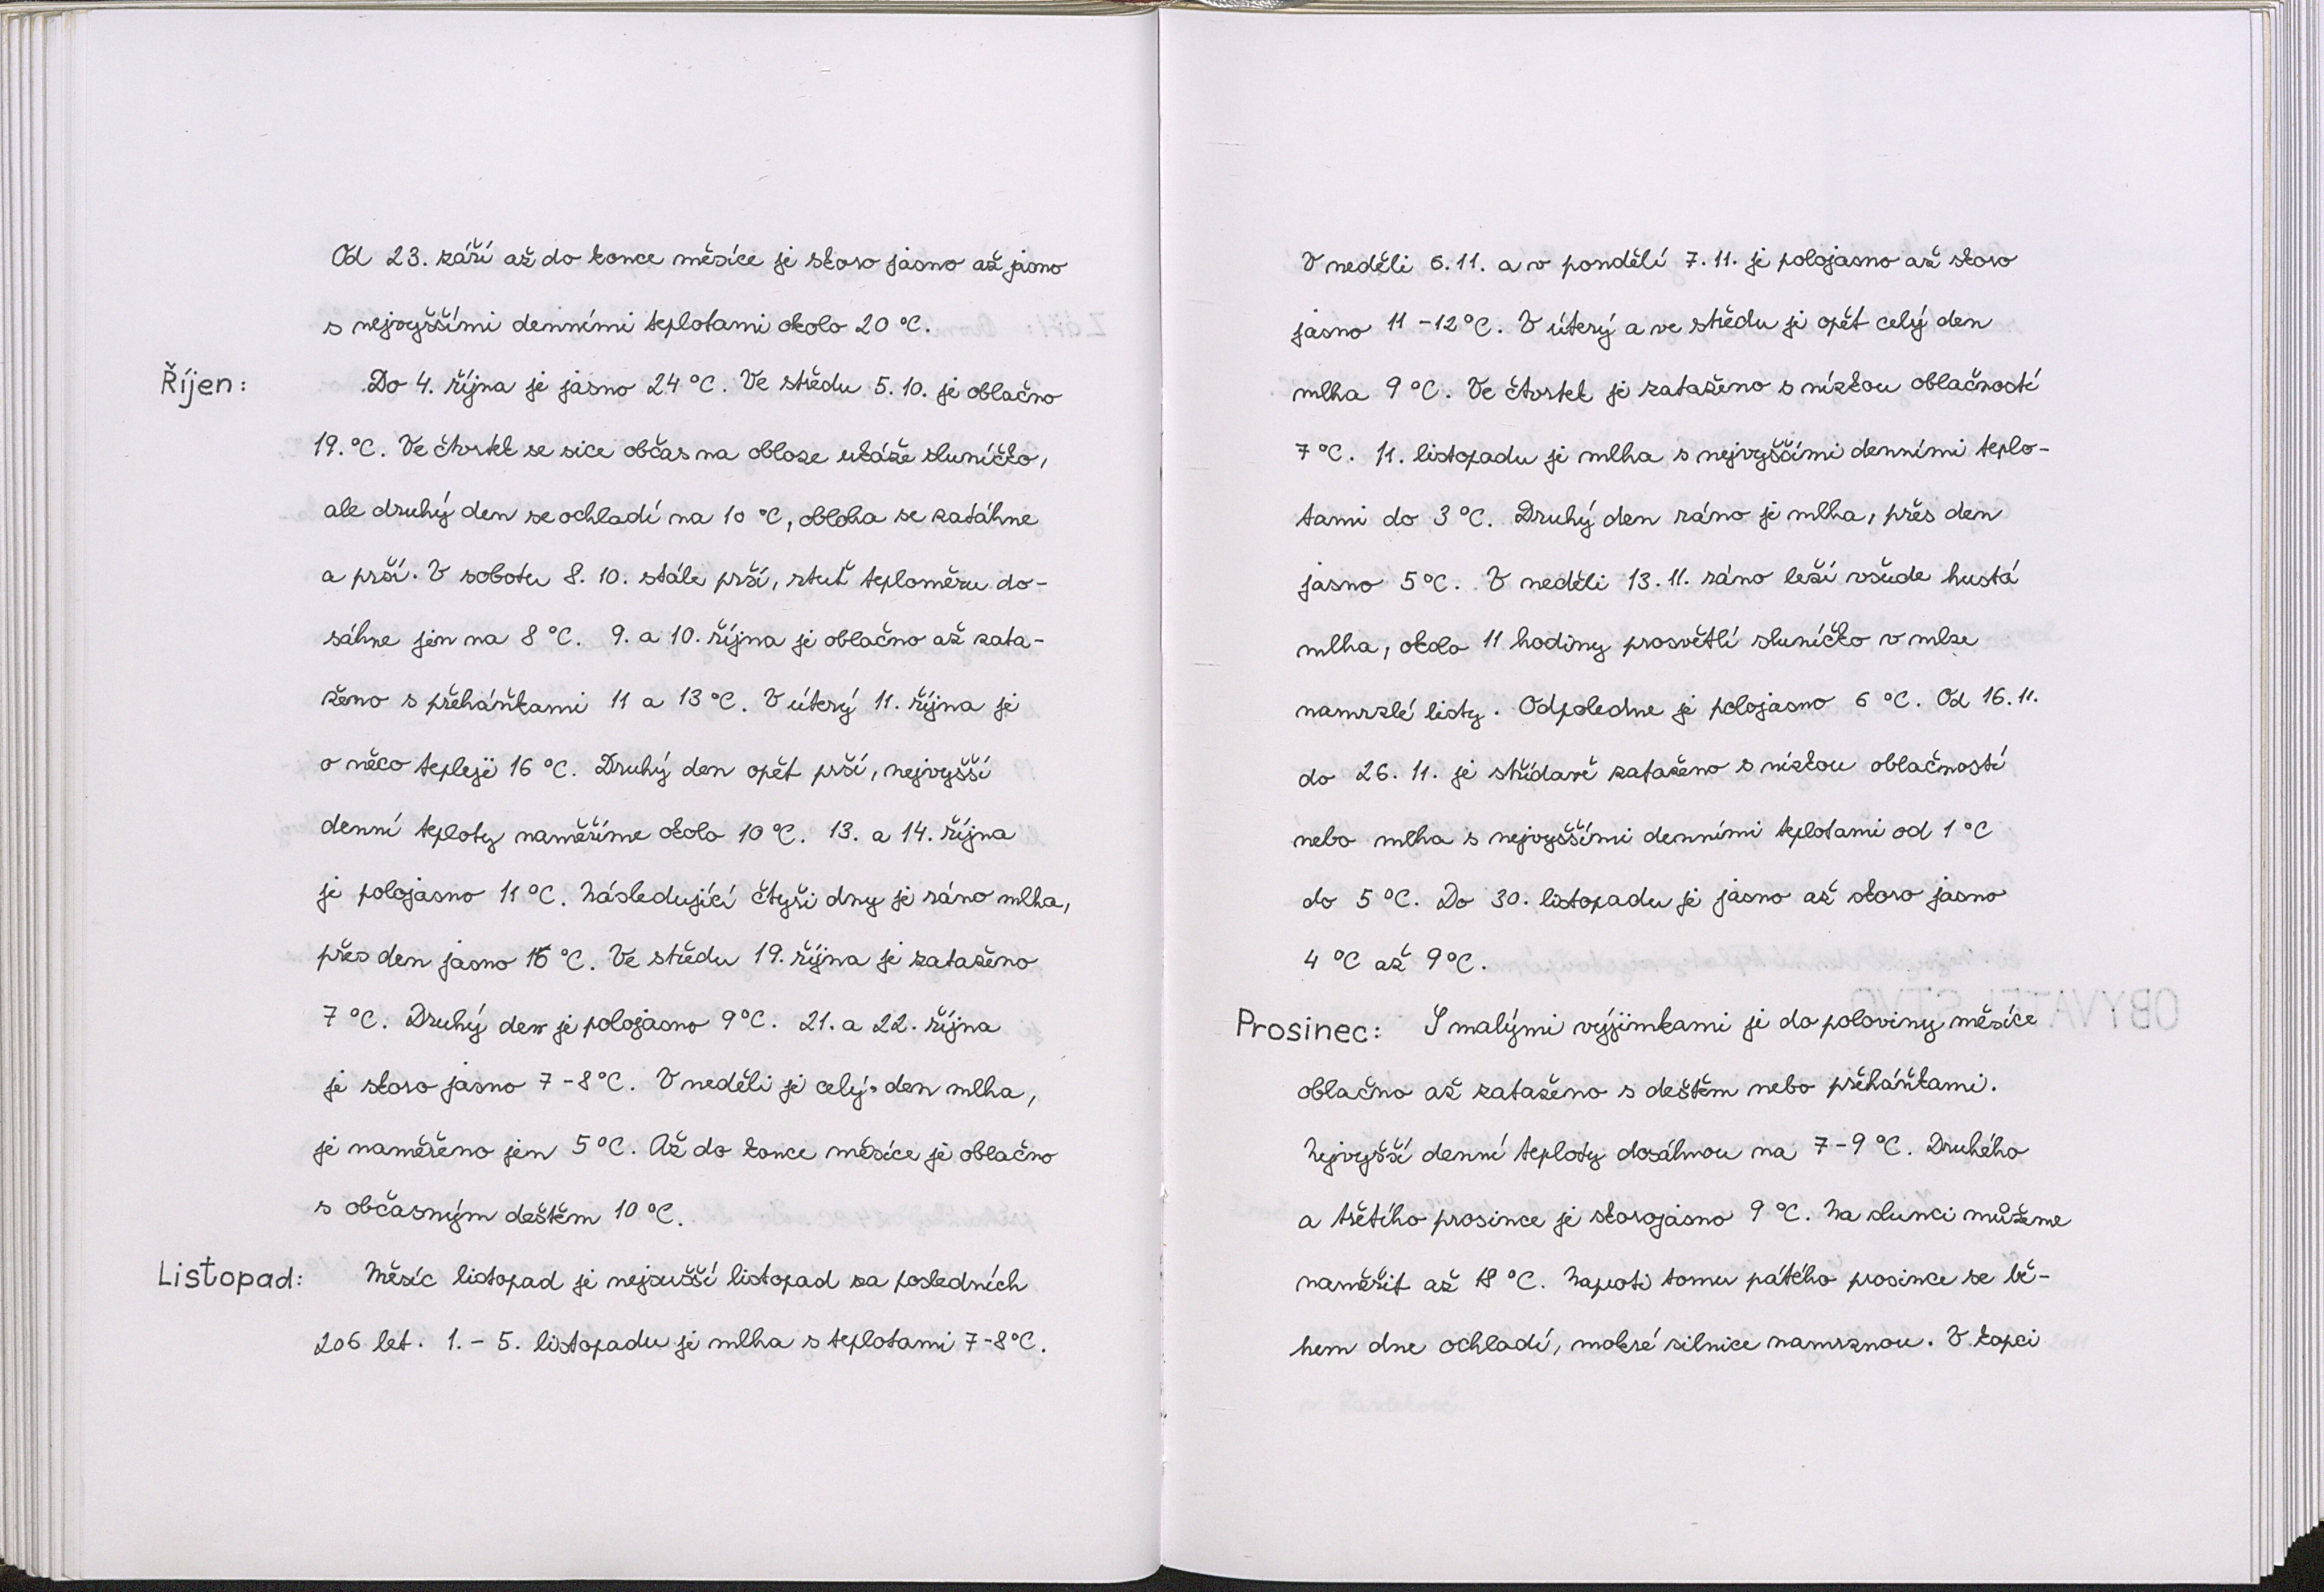 Od 23. září až do konce měsíce je skoro jasno až jasno
s nejvyššími denními teplotami okolo 20 °C.
Říjen: Do 4. října je jasno 24 °C. Ve středu 5. 10. je oblačno
19. °C. Ve čtvrtek se sice občas na obloze ukáže sluníčko,
ale druhý den se ochladí na 10 °C, obloha se zatáhne
a prší. V sobotu 8. 10. stále prší, rtuť teploměru do-
sáhne jen na 8 °C. 9. a 10. října je oblačno až zata-
ženo s přeháňkami 11 a 13 °C. V úterý 11. října je
o něco teplejí 16 °C. Druhý den opět prší, nejvyšší
denní teploty naměříme okolo 10 °C. 13. a 14. října
je polojasno 11 °C. Následující čtyři dny je ráno mlha,
přes den jasno 16 °C. Ve středu 19. října je zataženo
7 °C. Druhý den je polojasno 9 °C. 21. a 22. října
je skoro jasno 7-8 °C. V neděli je celý den mlha,
je naměřeno jen 5 °C. Až do konce měsíce je oblačno
s občasným deštěm 10 °C.
Listopad: Měsíc listopad je nejsušší listopad za posledních
206 let. 1. - 5. listopadu je mlha s teplotami 7-8 °C.
V neděli 6. 11. a v pondělí 7. 11. je polojasno až skoro
jasno 11 -12 °C. V úterý a ve středu je opět celý den
mlha 9 °C. Ve čtvrtek je zataženo s nízkou oblačností
7 °C. 11. listopadu je mlha s nejvyššími denními teplo-
tami do 3 °C. Druhý den ráno je mlha, přes den
jasno 5 °C. V neděli 13. 11. ráno leží všude hustá
mlha, okolo 11 hodiny prosvětlí sluníčko v mlze
namrzlé listy. Odpoledne je polojasno 6 °C. Od 16. 11.
do 26. 11. je střídavě zataženo s nízkou oblačností
nebo mlha s nejvyššími denními teplotami od 1 °C
do 5 °C. Do 30. listopadu je jasno až skoro jasno
4 °C až 9 °C.
Prosinec: S malými výjimkami je do poloviny měsíce
oblačno až zataženo s deštěm nebo přeháňkami.
Nejvyšší denní teploty dosáhnou na 7-9 °C. Druhého
a třetího prosince je skorojasno 9 °C. Na slunci můžeme
naměřit až 18 °C. Naproti tomu pátého prosince se bě-
hem dne ochladí, mokré silnice namrznou. V kopci